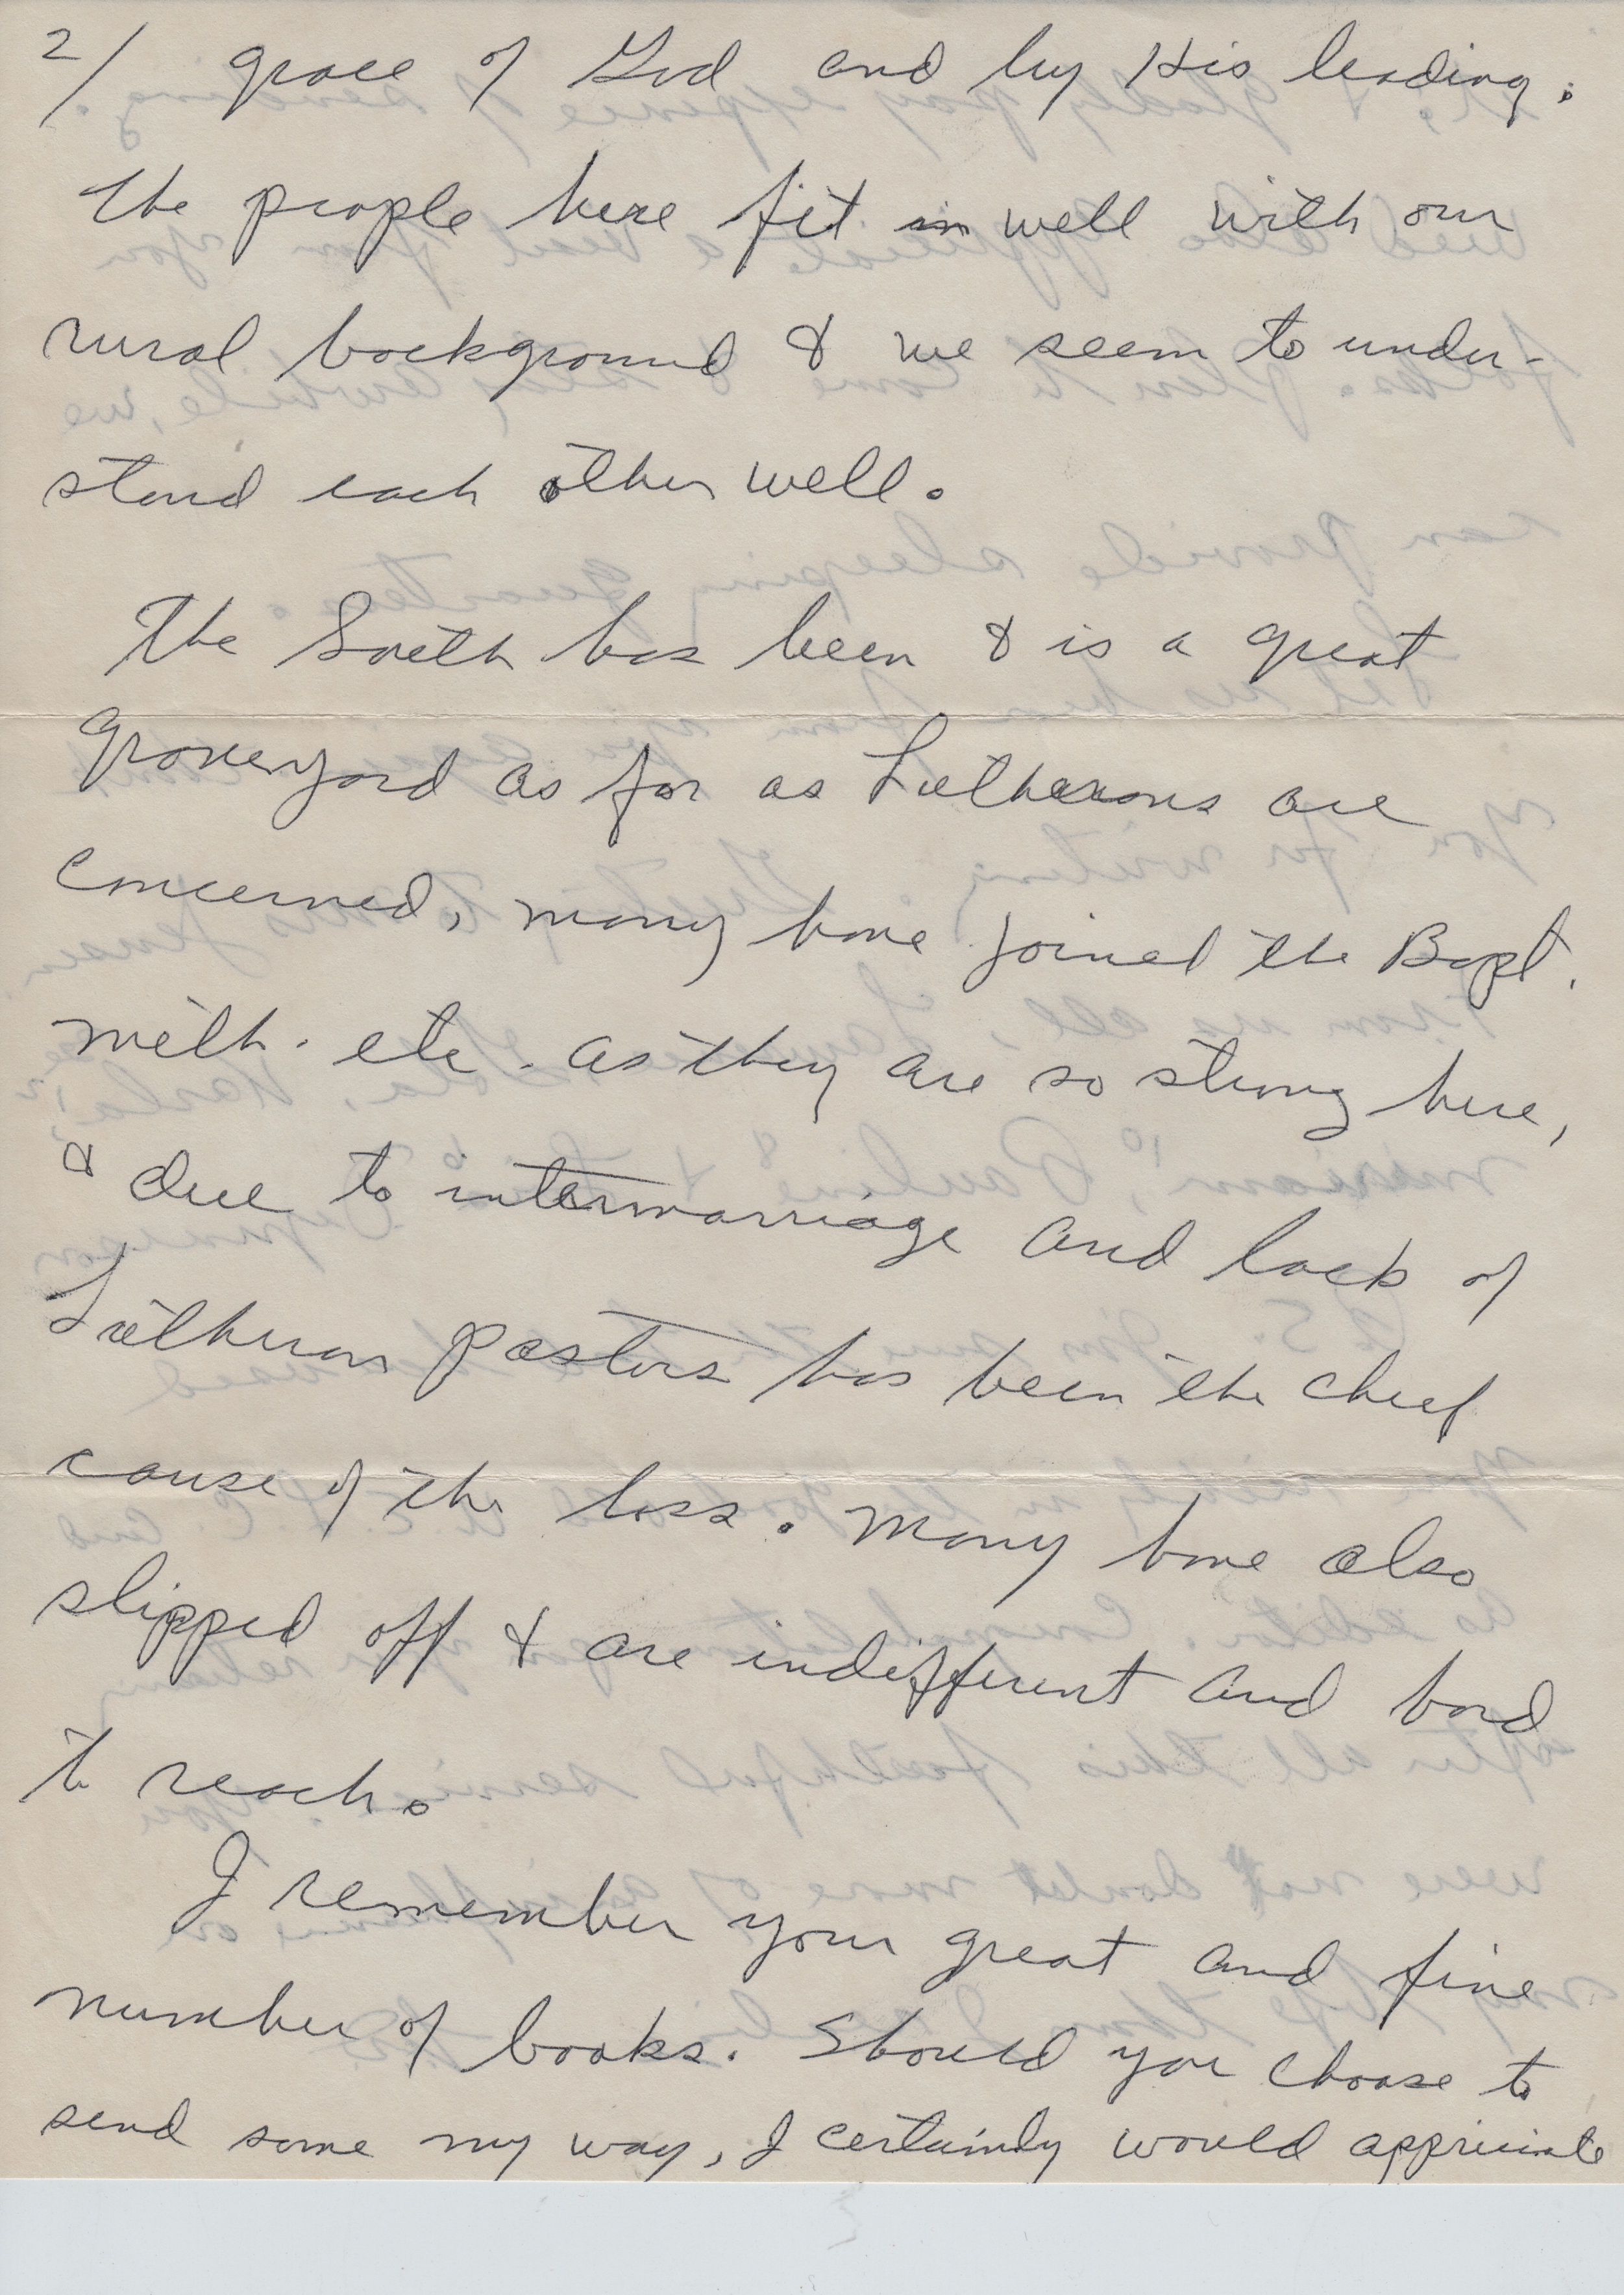 2/ grace of God and by His leading.
The people here fit in well with our
rural background & we seem to under-
stand each other well.
The South has been & is a great
graveyard as far as Lutherans are
concerned, many have joined the Bapt.
Meth. etc. as they are so strong here,
& due to intermarriage and lack of
Lutheran pastors has been the chief
cause of the loss. Many have also
slipped off & are indifferent and hard
to reach.
I remember your great and fine
number of books. Should you choose to
send some my way, I certainly would appreciate